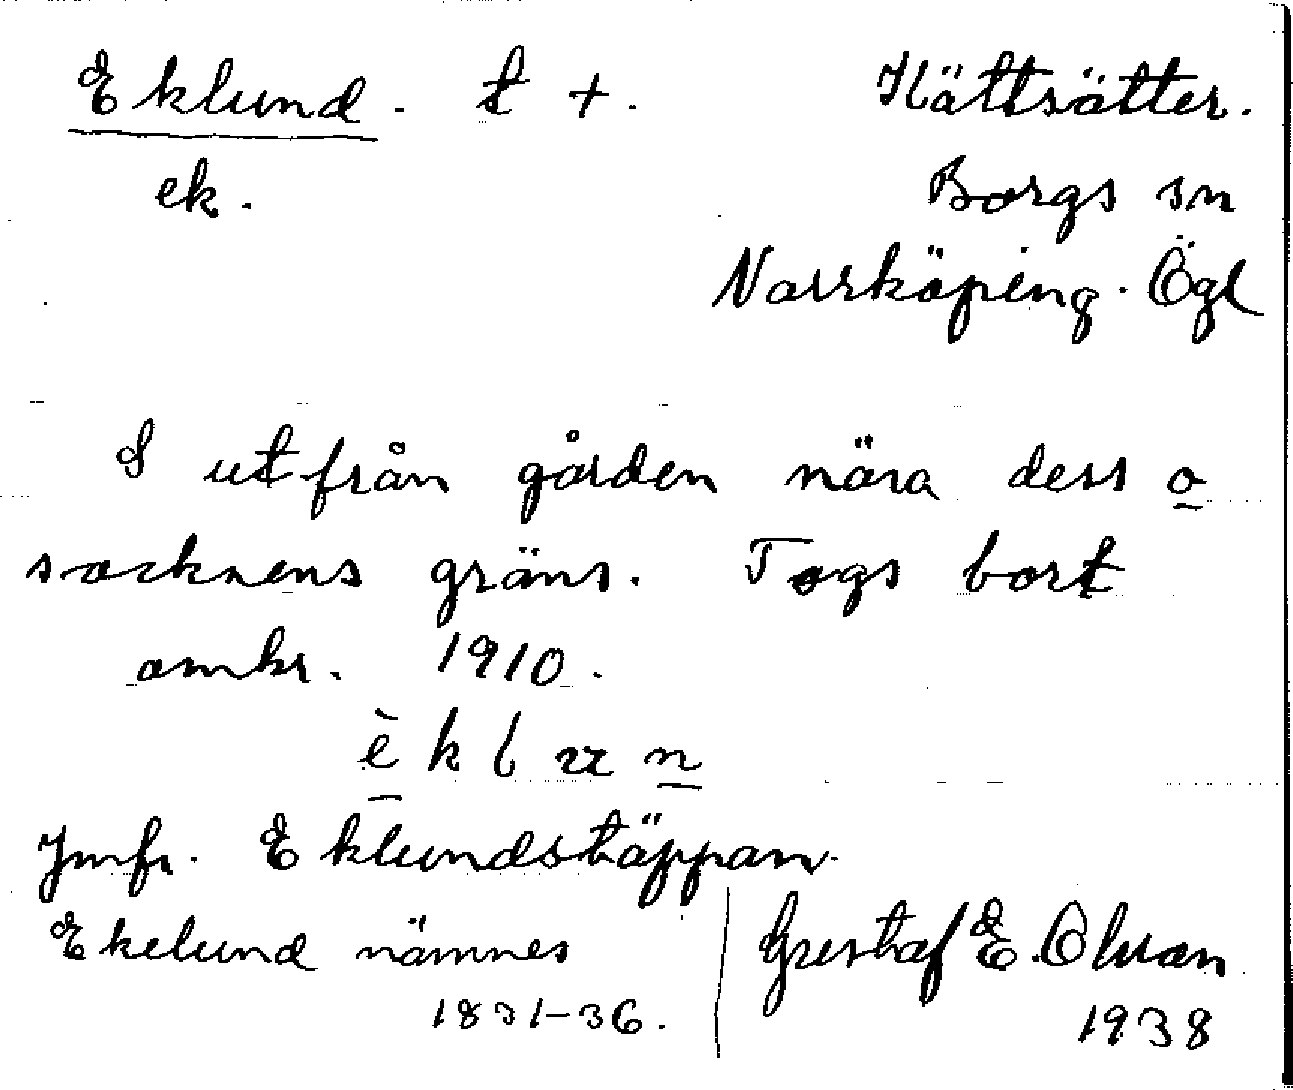 Eklund. t +. Hättsätter.
ek. Borgs sn
Norrköping. Ögl
S ut från gården nära dess o
socknens gräns. Togs bort
omkr. 1910.
è k l u n
Jmfr. Eklundstäppan.
Ekelund nämnes
1831-36.
Gustaf E. Olsson
1938